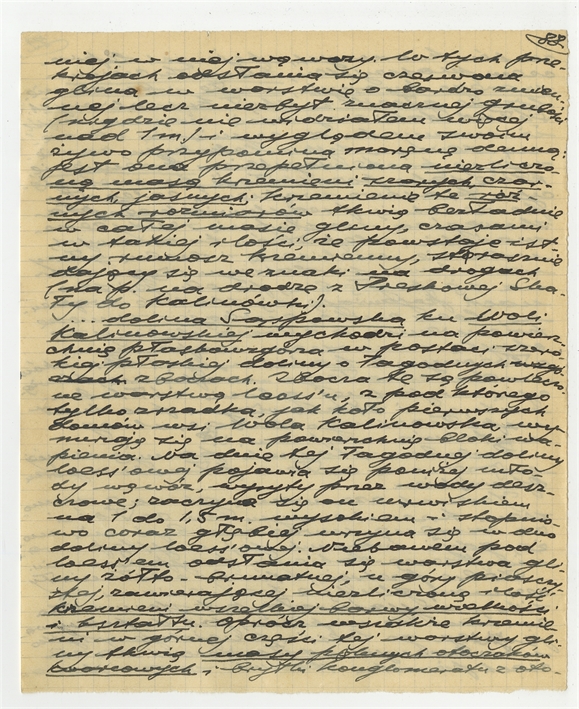 88
niej w niej wąwozy. W tych prze-
krojach odsłania się czerwona
glina w warstwie o bardzo zmien-
nej lecz niezbyt znacznej grubości
(nigdzie nie widziałam więcej
nad 1 m) i wyglądem swoim
żywo przypomina morenę denną;
jest ona przepełniona niezliczo-
ną masą krzemieni szarych, czar-
nych, jasnych; krzemienie te róż-
nych rozmiarów tkwią bezładnie
w całej masie gliny, czasami
w takiej ilości, że powstaje ist-
ny rumosz krzemienny, strasznie
dający się we znaki na drogach
(na p. na drodze z Pieskowej Ska-
ły do Kalinówki).
... dolina Sąspowska ku Woli
Kalinowskiej wychodzi na powierz-
chnię płaskowzgórza w postaci szero-
kiej płaskiej doliny o łagodnych
zboczach. Zbocza te są powleczo-
ne warstwą loess'u, z pod którego
tylko zrzadka, jak koło pierwszych
domów wsi Wola Kalinowska, wy-
nurzają się na powierzchnię bloki wa-
pienia. Na dnie tej łagodnej doliny
loess'owej pojawia się poniżej mło-
dy wąwóz, wyryty przez wody desz-
czowe; zaczyna się on urwiskiem
na 1 do 1,5 m. wysokiem i stopnio-
wo coraz głębiej wrzyna się w dno
doliny loess'owej. Niebawem pod
loess'em odsłania się warstwa gli-
ny żółto-brunatnej, u góry piaszczy-
stej, zawierającej niezliczoną ilość
krzemieni wszelkiej barwy wielkości
i kształtu. Oprócz wszakże krzemie-
ni w górnej części tej warstwy gli-
ny tkwią masy płonych otoczaków
kwarcowych i bryłki konglomeratu z oto-